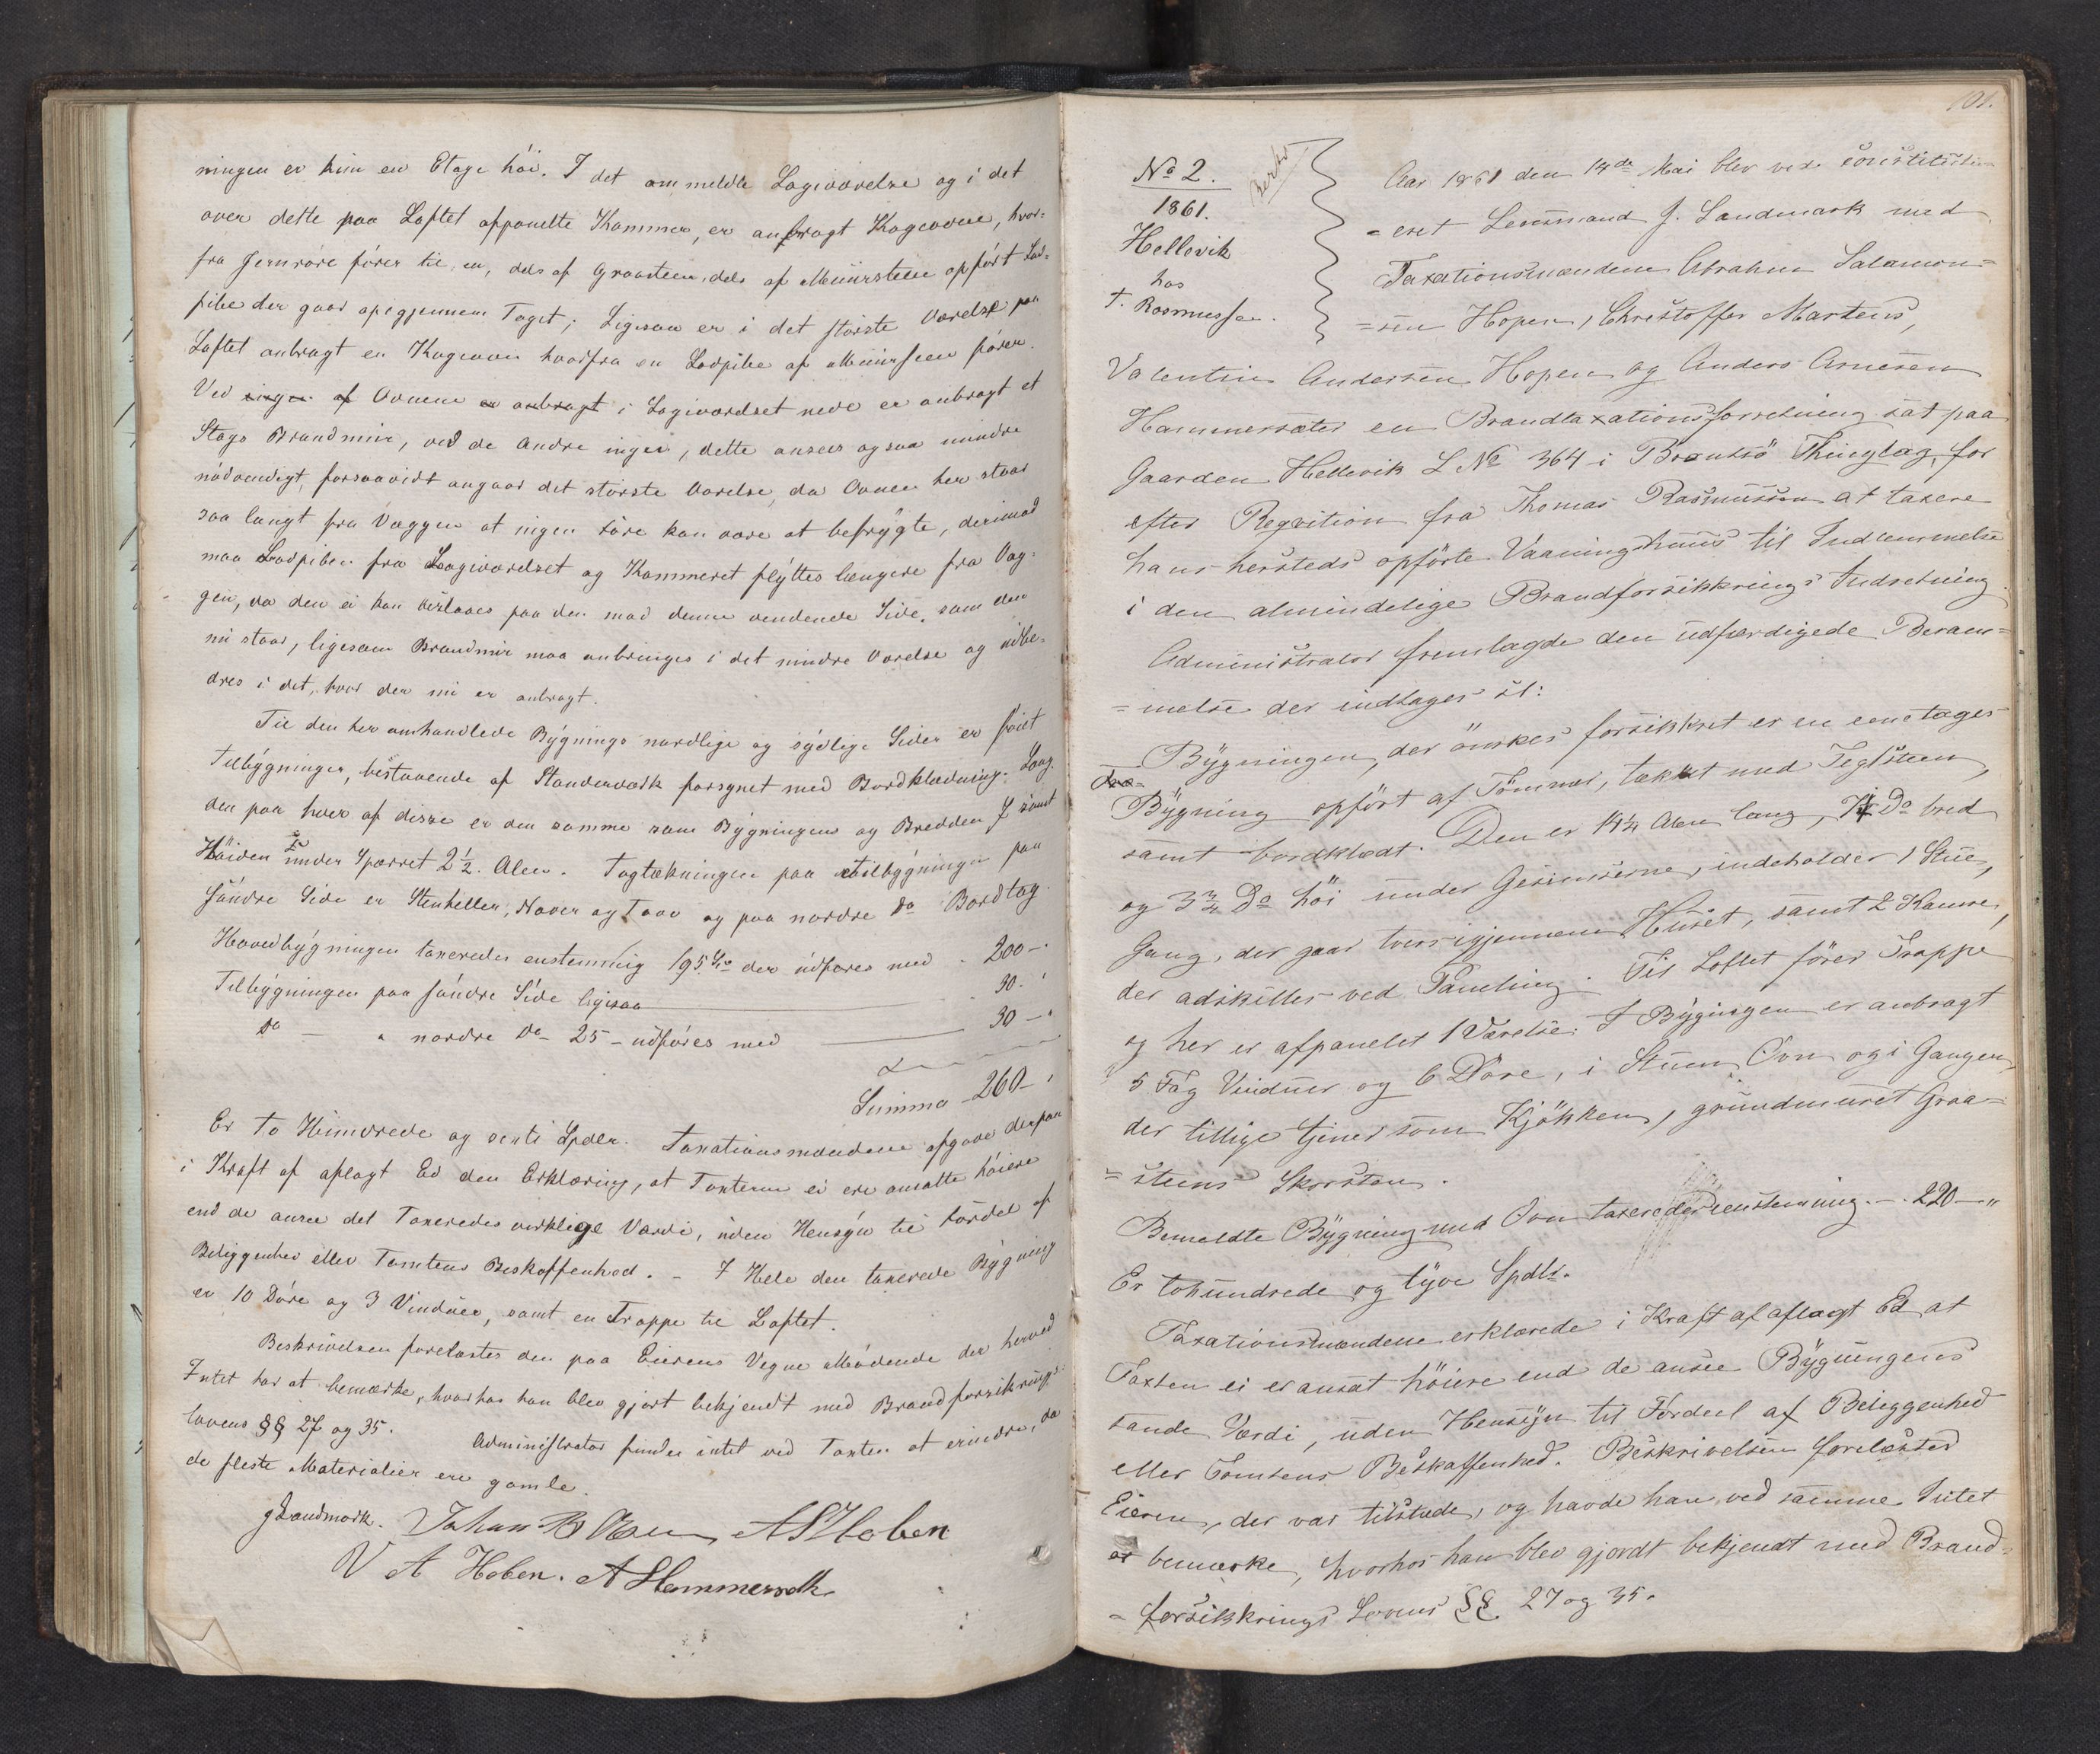 ningen er kun en Etage höi. I det ommeldte Logiværelse og i det
over dette paa Loftet afpanelte Kammer, er anbragt Kogeovne, hvor-
fra Jernröre förer til en, dels af Graasteen, dels af Muursteen opfört Lod-
pibe der gaar opigjennem Taget; Ligesaa er i det störste Værelse paa
Loftet anbragt en Kogeovn hvorfra en Lodpibe af Muursteen förer.
Ved ingen af Ovnene er anbragt i Logiværelset nede er anbragt et
Slags Brandmur, ved de Andre ingen, dette ansees ogsaa mindre
nödvendigt, forsaavidt angaar det störste Værelse, da Ovnen her staar
saa langt fra Væggen at ingen Fare kan være at befrygte, derimod
maa Lodpiben fra Logiværelset og Kammeret flyttes længere fra Væg-
gen, da den ei kan kistaaes paa den mod denne vendende Side, som den
nu staar, ligesom Brandmur maa anbringes i det mindre Værelse og udbe-
dres i det, hvor den nu er anbragt.
Til den her omhandlede Bygnings nordlige og sydlige Sider er föiet
Tilbygninger, bestaaende af Standerværk forsynet med Bordklædning. Læng-
den paa hver af disse er den samme som Bygningens og Bredden 7 samt
Höiden under Sparret 2½ Alen. Tagtækningen paa Tilbygningen paa
söndre Side er Steenheller, Næver og Torv og paa nordre Do Bordtag.
Hovedbygningen taxeredes enstemmig 195 der udföres med - 200 - "
Tilbygningen paa söndre Side ligesaa - 30 - "
Do - " nordre Do - 25 - udföres med 30 - "
Summa - 260 - "
Er to Hundrede og sexti Spdlr. Taxationsmændene afgave derpaa
i Kraft af aflagt Ed den Erklæring, at Taxterne ei ere ansatte höiere
end de ansee det Taxeredes virklige Værdi, uden Hensyn til Fordel af
Beliggenhed eller Tomtens Beskaffenhed. - I Hele den taxerede Bygning
er 10 Döre og 3 Vinduer, samt en Trappe til Loftet.
Beskrivelsen forelæstes den paa Eierens Vegne Mödende der herved
Intet har at bemærke, hvorhos han blev gjort bekjendt med Brandforsikrings-
lovens §§ 27 og 35. Administrator finder intet ved Taxten at erindre, da
de fleste Materialier ere gamle.
J Landmark. Johan B Olsen A S Hoben
V A Hoben. A Hammersæth
101.
No 2.
1861.
Hellevik
hos
T. Rasmussen.
Aar 1861 den 14de Mai blev ved constitu-
=eret Lensmand J. Landmark med
Taxationsmændene Abraham Salamon=
=sen Hopen, Christoffer Martens,
Valentin Andersen Hopen og Anders Arnesen
Hammersæter en Brandtaxationsforretning sat paa
Gaarden Hellevik L No 364 i Brandsö Thinglag, for
efter Reqvition fra Thomas Rasmussen at taxere
hans hersteds opförte Vaaningshuus til Indlemmelse
i den almindelige Brandforsikkrings Indretning.
Administrator fremlagde den udfærdigede Beram=
=melse der indtages sl:
Bygningen, der önskes forsikkret er en eenetages
Bygning opfört af Tömmer, tækket med Teglsteen,
samt bordklædt. Den er 14¼ Alen lang, Do bred
og 3¾ Do höi under Gesimserne, indeholder 1 Stue,
Gang, der gaar tversigjennem Huset, samt 2 Kamre,
der adskilles ved Paneling. Til Loftet förer Trappe
og her er afpanelet 1 Værelse. I Bygningen er anbragt
5 Fag Vinduer og 6 Döre, i Stuen Ovn og i Gangen,
der tillige tjener som Kjökken, grundmuret Graa=
=steens Skorsteen.
Bemeldte Bygning med Ovn taxeredes eenstemmig - 220 - "
Er tohundrede og tyve Spdlr.
Taxationsmændene erklærede i Kraft af aflagt Ed at
Taxten ei er ansat höiere end de ansee Bygningens
sande Værdi, uden Hensyn til Fordeel af Beliggenhed
eller Tomtens Beskaffenhed. Beskrivelsen forelæstes
Eieren, der var tilstæde, og havde han ved samme Intet
at bemærke, hvorhos han blev gjordt bekjendt med Brand-
=forsikkrings Lovens §§ 27 og 35.